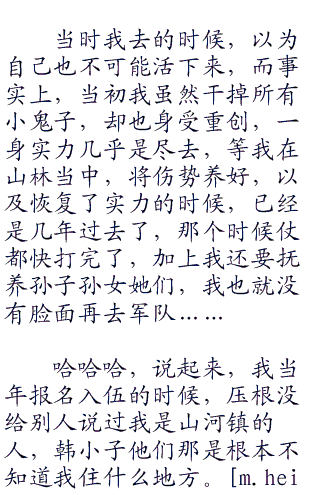 当时我去的时候，以为
自己也不可能活下来，而事
实上，当初我虽然干掉所有
小鬼子，却也身受重创，一
身实力几乎是尽去，等我在
山林当中，将伤势养好，以
及恢复了实力的时候，已经
是几年过去了，那个时候仗
都快打完了，加上我还要抚
养孙子孙女她们，我也就没
有脸面再去军队……
哈哈哈，说起来，我当
年报名入伍的时候，压根没
给别人说过我是山河镇的
人，韩小子他们那是根本不
知道我住什么地方。[m.hei